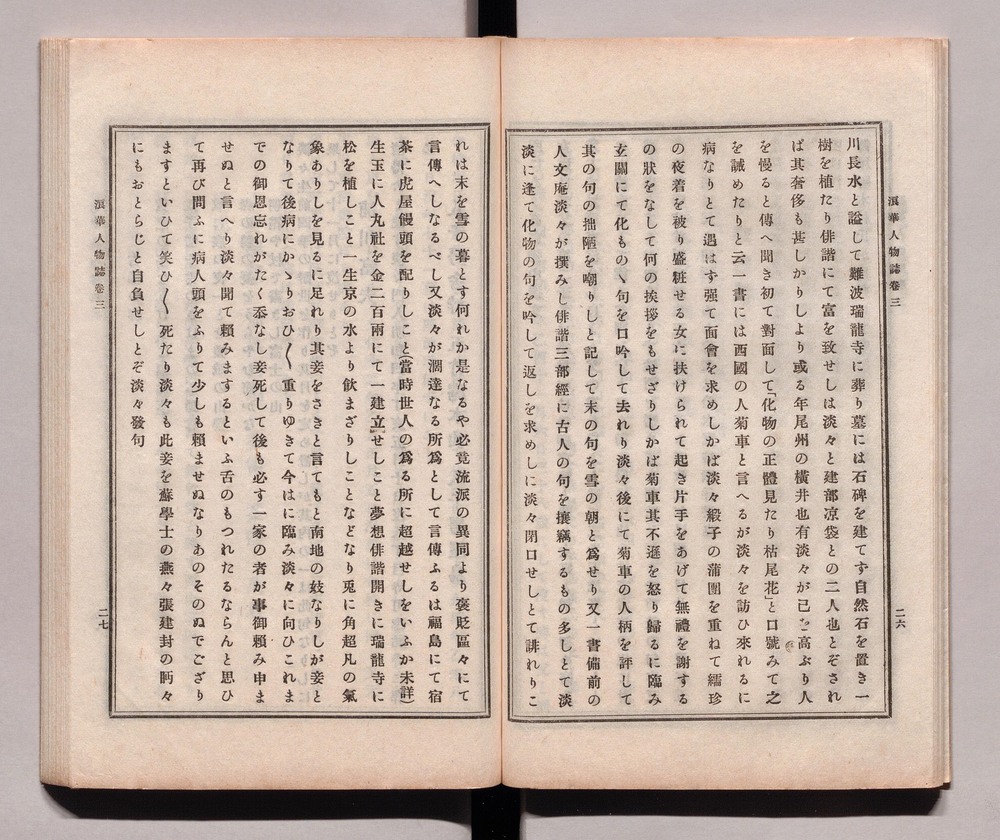 浪華人物誌卷三
二六
川長水と謚して難波瑞龍寺に葬り墓には石碑を建てす自然石を置き一
樹を植たり俳諧にて富を致せしは淡々と建部凉袋との二人也とぞされ
ば其奢侈も甚しかりしより或る年尾州の橫井也有淡々が己を高ぶり人
を慢ると傳へ聞き初て對面して「化物の正體見たり枯尾花」と口號みて之
を誡めたりと云一書には西國の人菊車と言へるが淡々を訪ひ來れるに
病なりとて遇はず强て面會を求めしかば淡々緞子の蒲團を重ねて繻珍
の夜着を被り盛粧せる女に扶けられて起き片手をあげて無禮を謝する
の狀をなして何の挨拶をもせざりしかば菊車其不遜を怒り歸るに臨み
玄關にて化ものゝ句を口吟して去れり淡々後にて菊車の人柄を評して
其の句の拙陋を嘲りしと記して末の句を雪の朝と爲せり又一書備前の
人文庵淡々が撰みし俳諧三部經に古人の句を攘竊するもの多しとて淡
淡に逢て化物の句を吟して返しを求めしに淡々閉口せしとて誹れりこ
れは末を雪の暮とす何れか是なるや必竟流派の異同より褒貶區々にて
言傳へしなるべし又淡々が濶達なる所爲として言傳ふるは福島にて宿
茶に虎屋饅頭を配りしこと(當時世人の爲る所に超越せしをいふか未詳)
生玉に人丸社を金二百兩にて一建立せしこと夢想俳諧開きに瑞龍寺に
松を植しこと一生京の水より飮まざりしことなどなり兎に角超凡の氣
象ありしを見るに足れり其妾をさきと言てもと南地の妓なりしが妾と
なりて後病にかゝりおひ〱重りゆきて今はに臨み淡々に向ひこれま
での御恩忘れがたく忝なし妾死して後も必す一家の者が事御賴み申ま
せぬと言へり淡々聞て賴みまするといふ舌のもつれたるならんと思ひ
て再び問ふに病人頭をふりて少しも賴ませぬなりあのそのぬでござり
ますといひて笑ひ〱死たり淡々も此妾を蘇學士の燕々張建封の盻々
にもおとらじと自負せしとぞ淡々發句
浪華人物誌卷三
二七